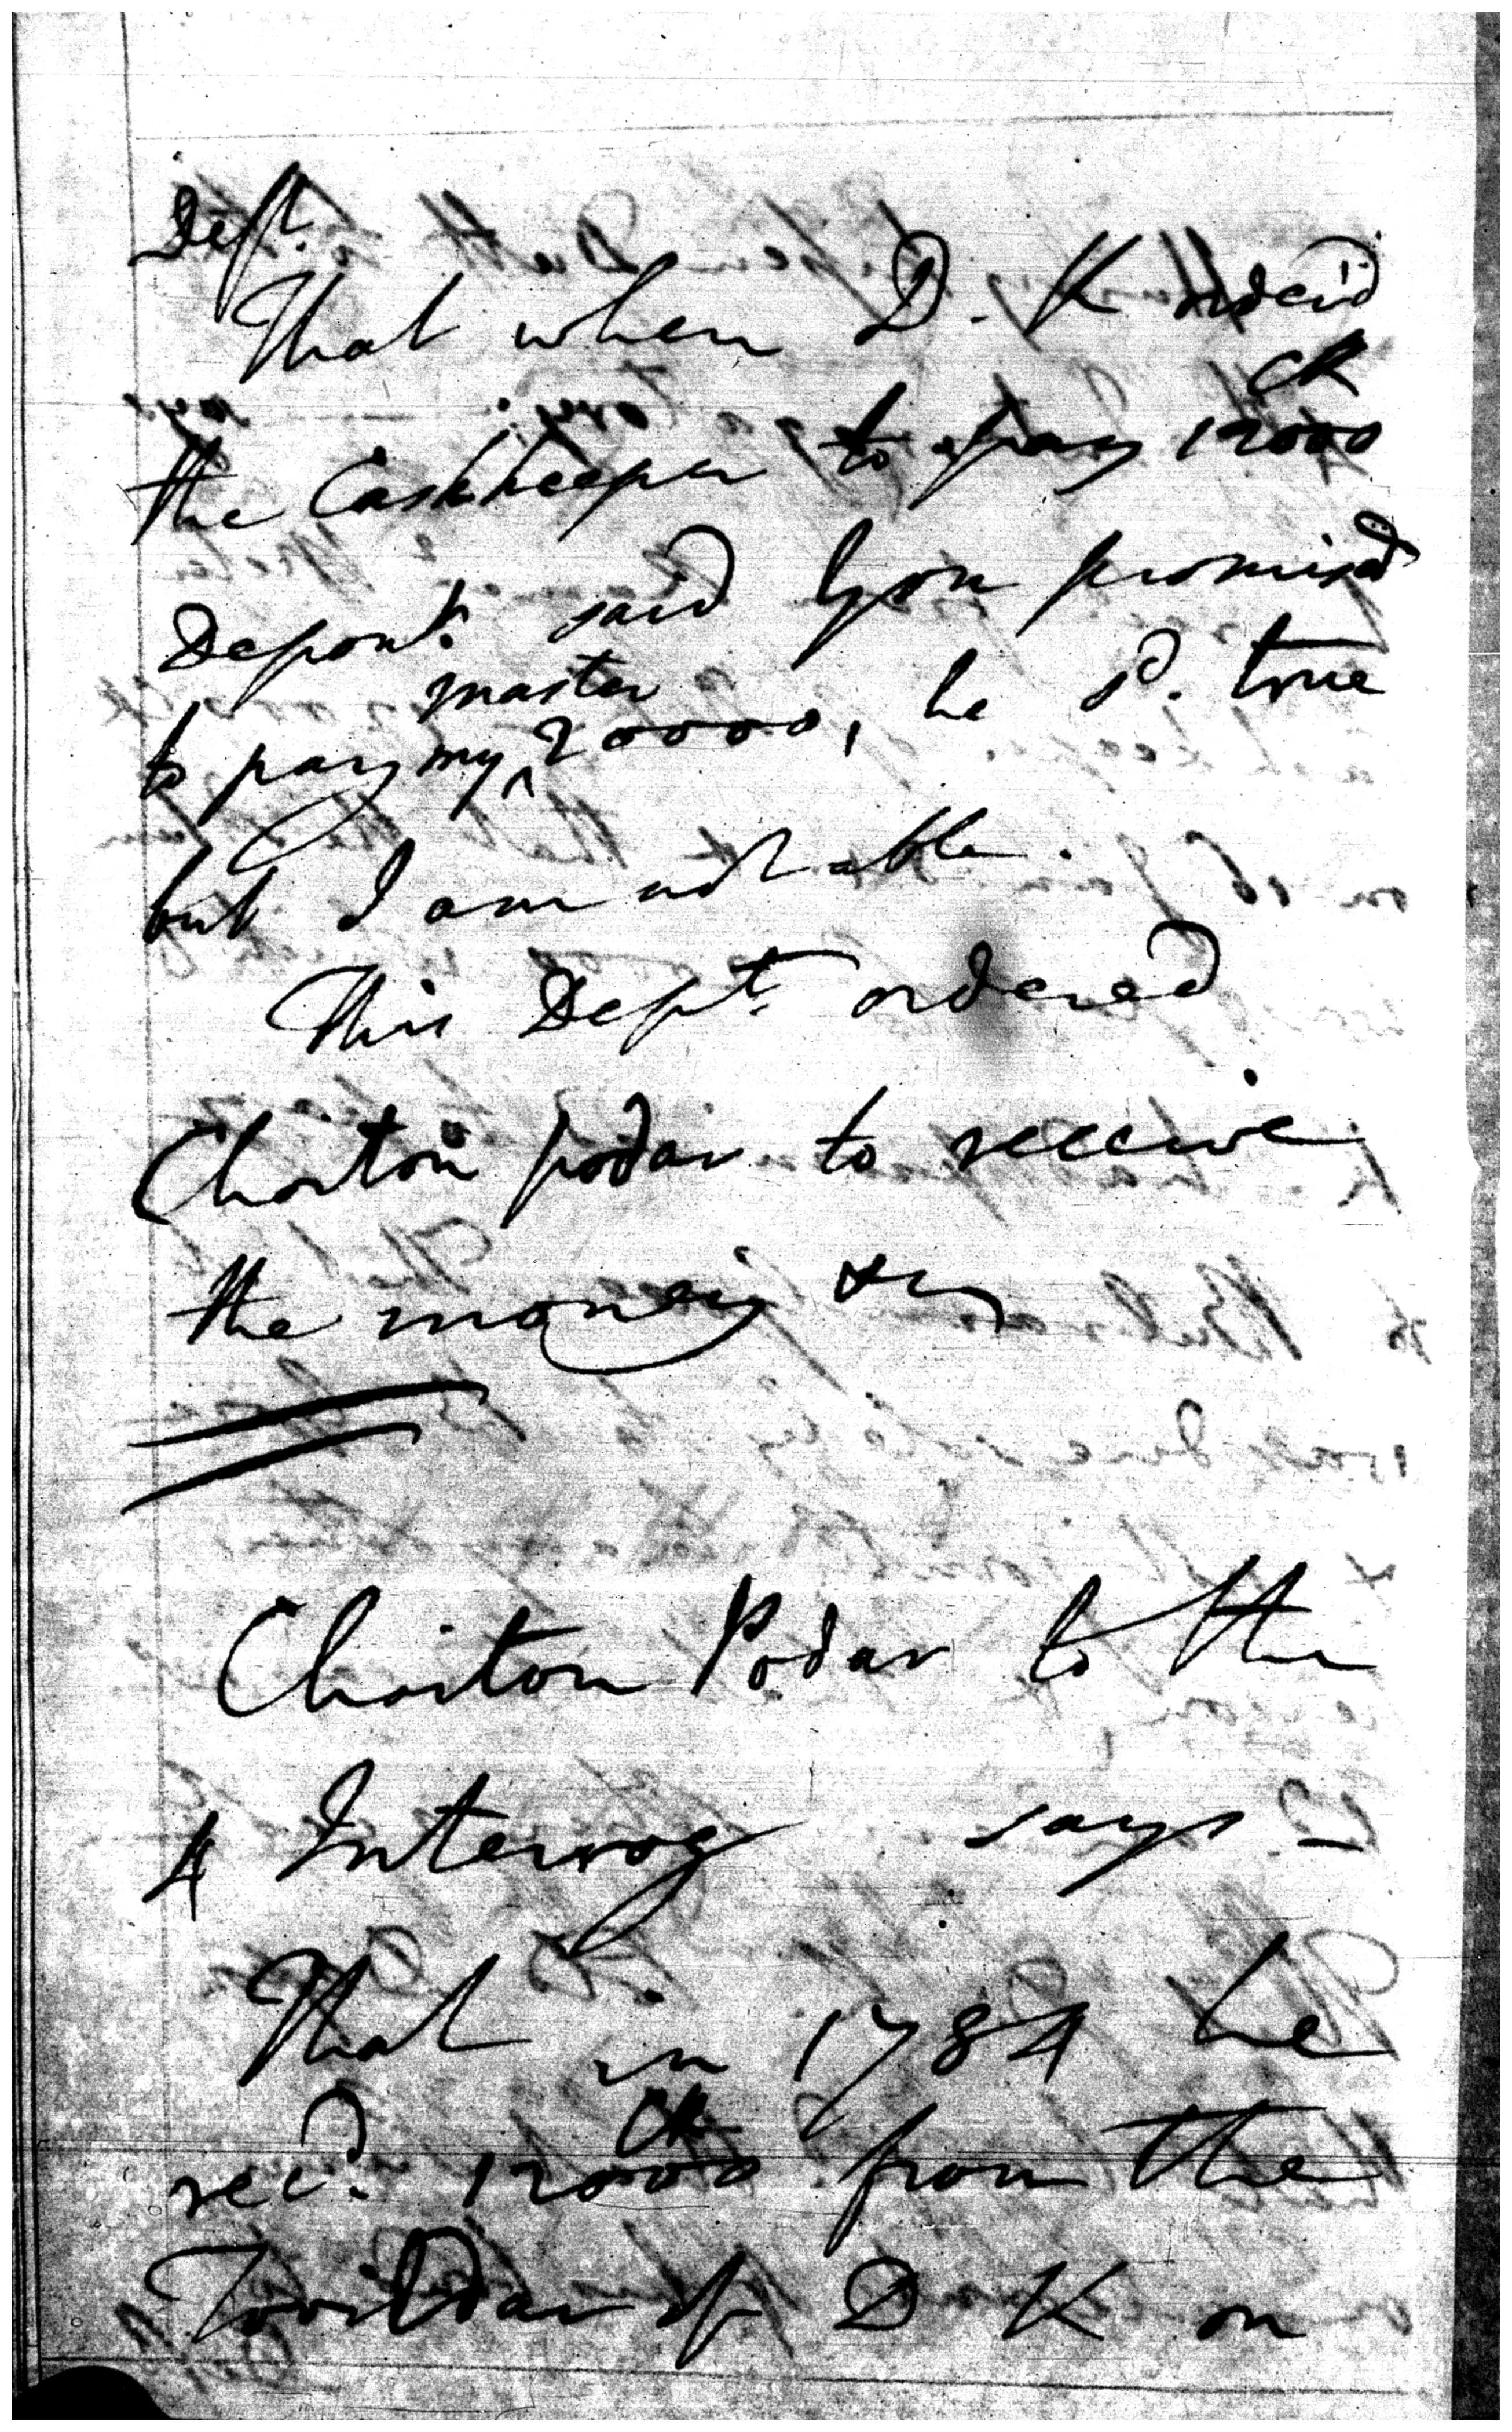 Dept.
That when D. K order'd
CR
the Cashkeeper to pay 12000
Depont. said you promised
master
to pay my ^ 20000, he sd. true
but I am not able.
This Dept. ordered
Choiton podar to receive
the money &c
Choiton Podar to the
4 Interrog says —
That in 1784 he
CR
recd. 12000 from the
of D K on